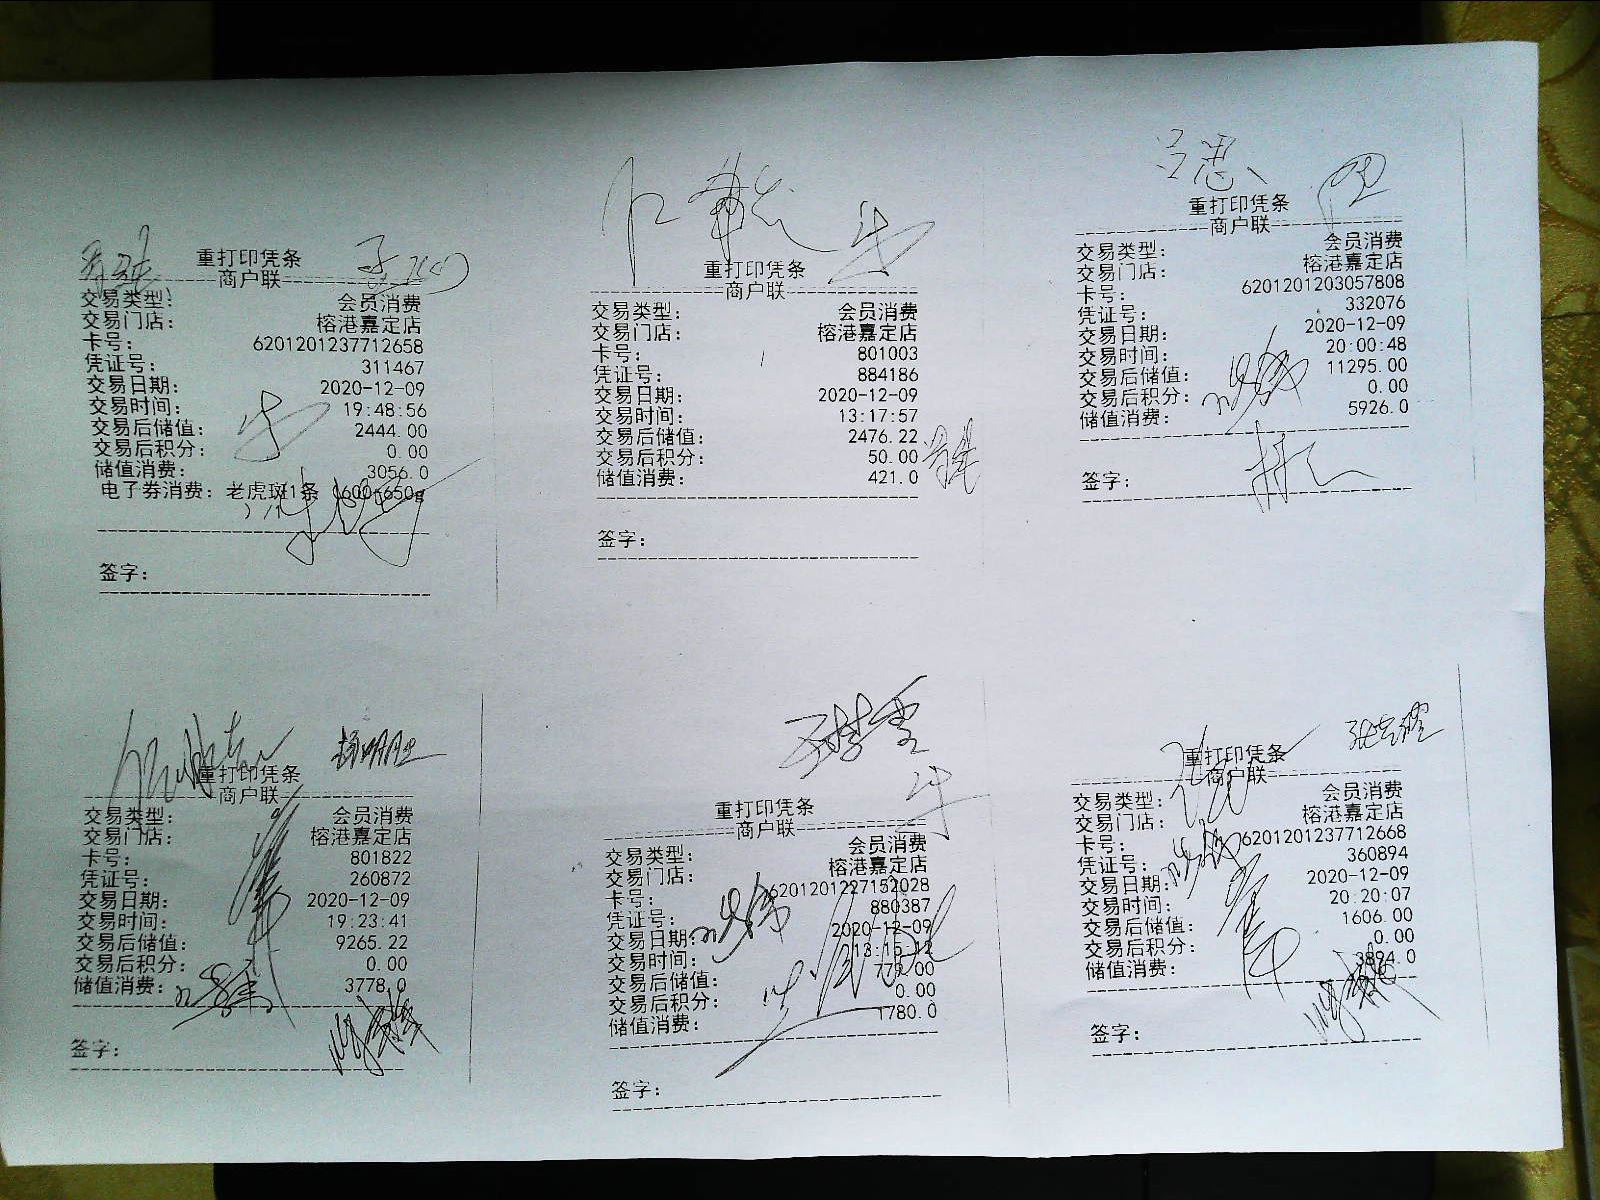 重打印凭条
商户联
交易类型： 会员消费
交易门店： 榕港嘉定店
卡号： 6201201237712658
凭证号： 311467
交易日期： 2020-12-09
交易时间： 19:48:56
交易后储值： 2444.00
交易后积分： 0.00
储值消费： 3056.0
电子券消费：老虎斑1条（600-650g
签字：
重打印凭条
商户联
交易类型： 会员消费
交易门店： 榕港嘉定店
卡号： 801003
凭证号： 884186
交易日期： 2020-12-09
交易时间： 13:17:57
交易后储值： 2476.22
交易后积分： 50.00
储值消费： 421.0
签字：
重打印凭条
商户联
交易类型： 会员消费
交易门店： 榕港嘉定店
卡号： 6201201203057808
凭证号： 332076
交易日期： 2020-12-09
交易时间： 20:00:48
交易后储值： 11295.00
交易后积分： 0.00
储值消费： 5926.0
签字：
重打印凭条
商户联
交易类型： 会员消费
交易门店： 榕港嘉定店
卡号： 801822
凭证号： 260872
交易日期： 2020-12-09
交易时间： 19:23:41
交易后储值： 9265.22
交易后积分： 0.00
储值消费： 3778.0
签字：
重打印凭条
商户联
交易类型： 会员消费
交易门店： 榕港嘉定店
卡号： 6201201227152028
凭证号： 880387
交易日期： 2020-12-09
交易时间： 13:15:12
交易后储值：
交易后积分： 0.00
储值消费： 1780.0
签字：
重打印凭条
商户联
交易类型： 会员消费
交易门店： 榕港嘉定店
卡号： 6201201237712668
凭证号： 360894
交易日期： 2020-12-09
交易时间： 20:20:07
交易后储值： 1606.00
交易后积分： 0.00
储值消费： 3894.0
签字：